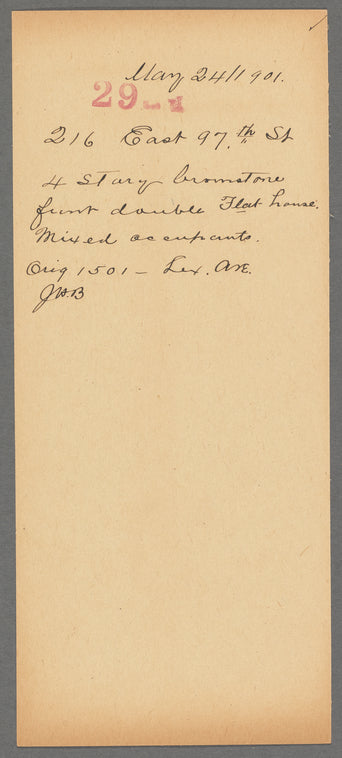 May 24/1901.
29
216 East 97.th St
4 Story brownstone
front double Flat house.
Mixed occupants.
Orig 1501 - Lex. Ave.
JHB